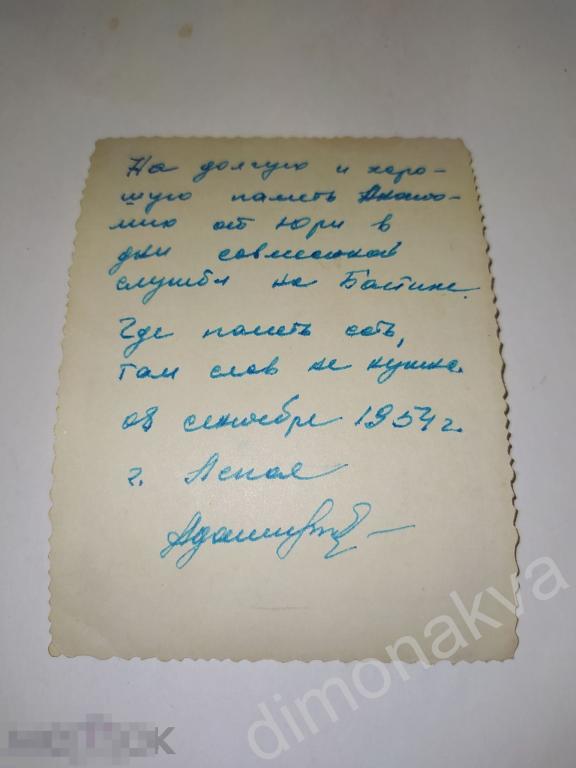 На долгую и хоро-
шую память Анато-
лию от Юри в
дни совместной
службы на Балтике.
Где память есть,
там слов не нужно.
08 сентября 1954 г.
г.
dimonakva